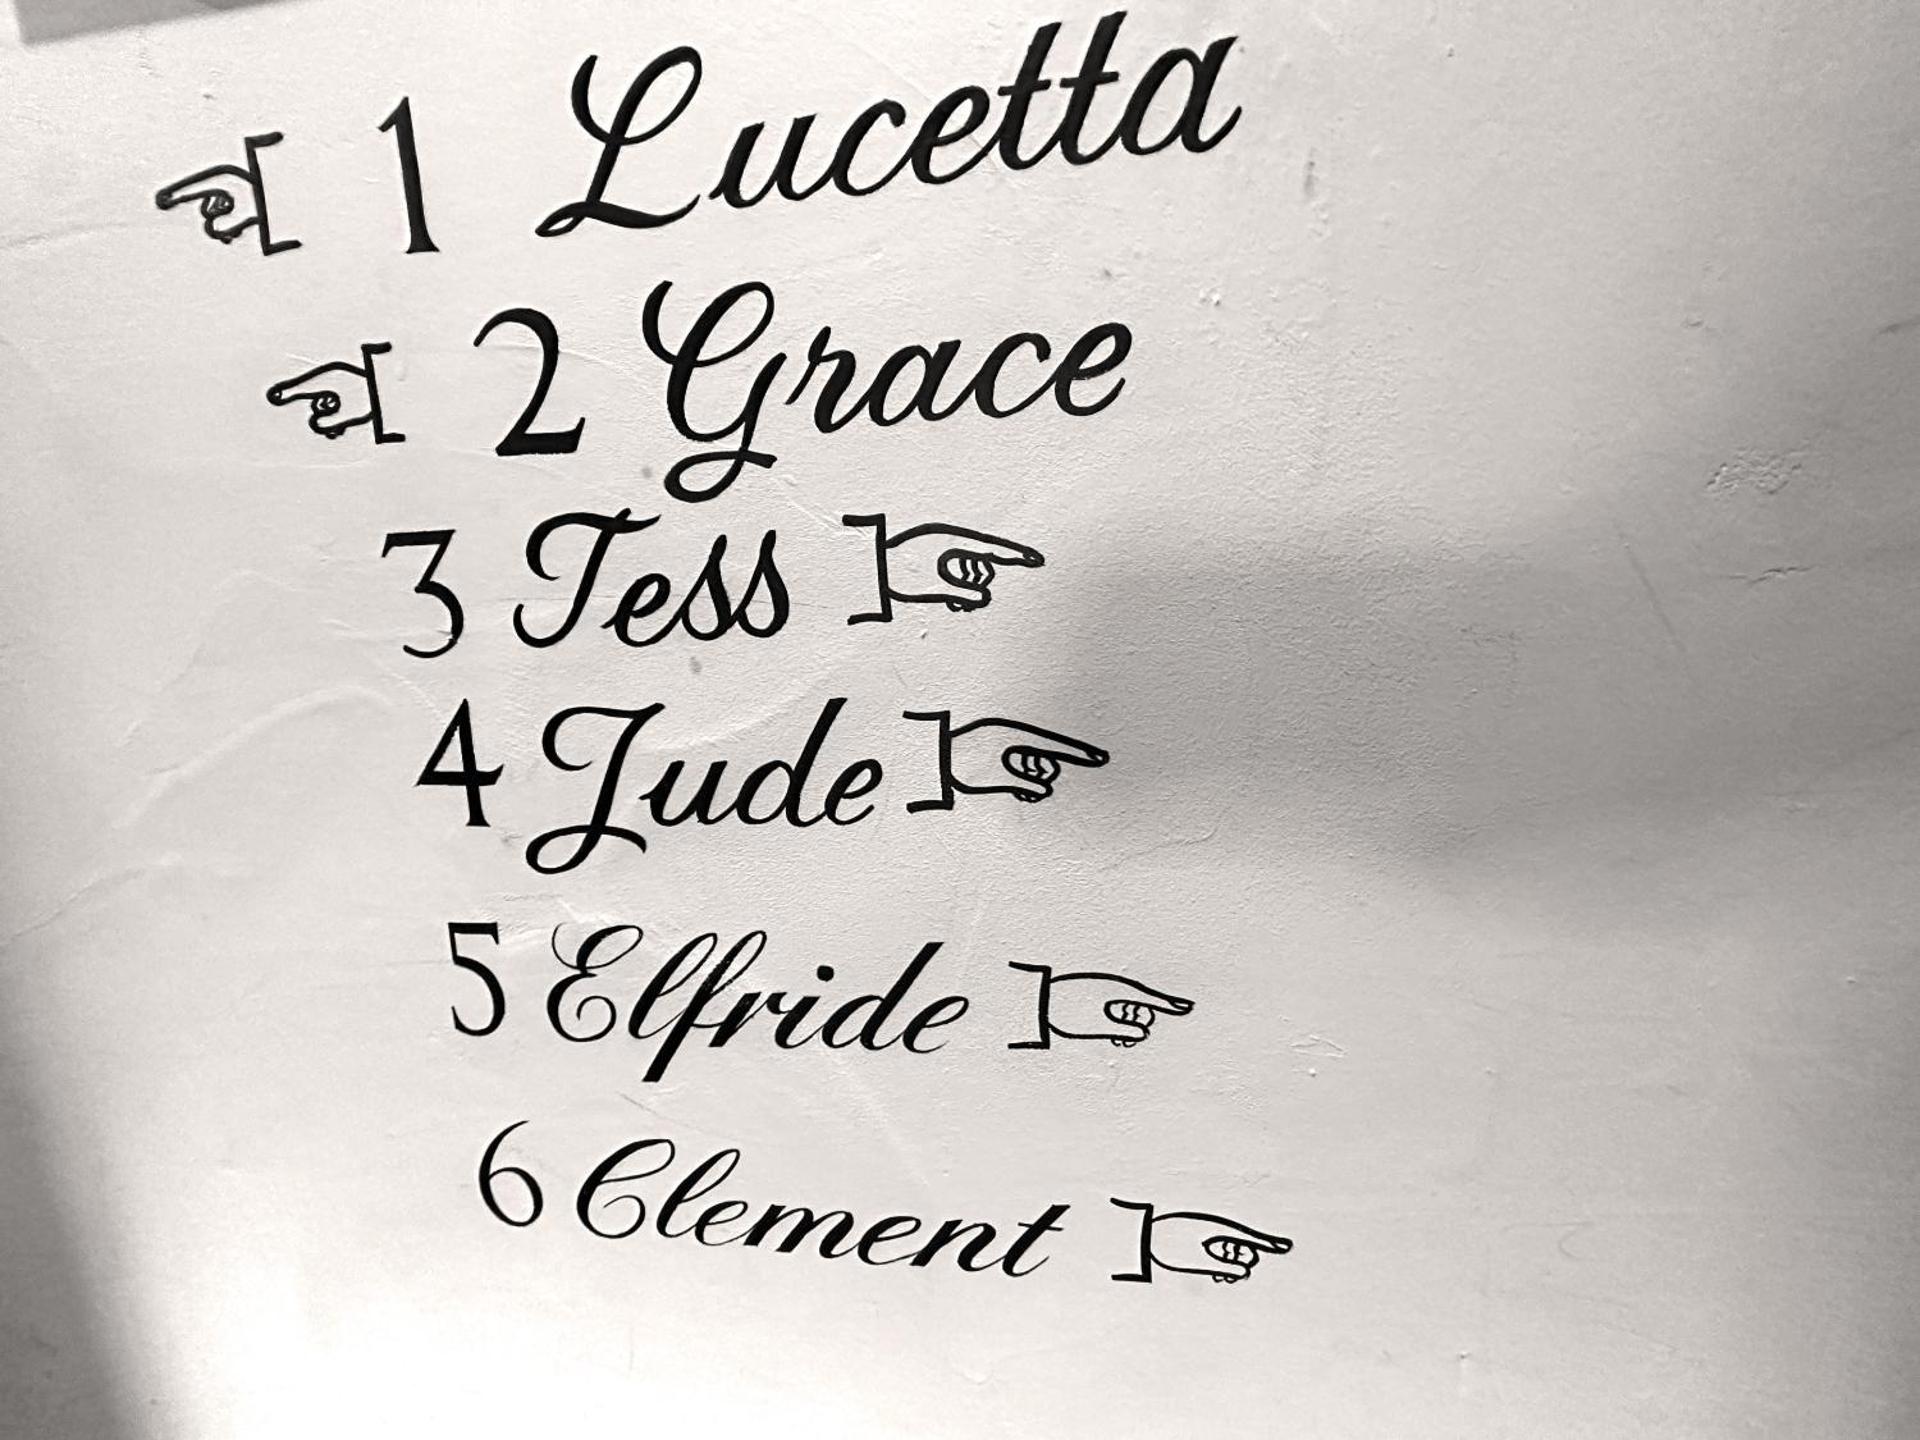 1 Lucetta
2 Grace
3 Tess
4 Jude
5 Elfride
6 Clement